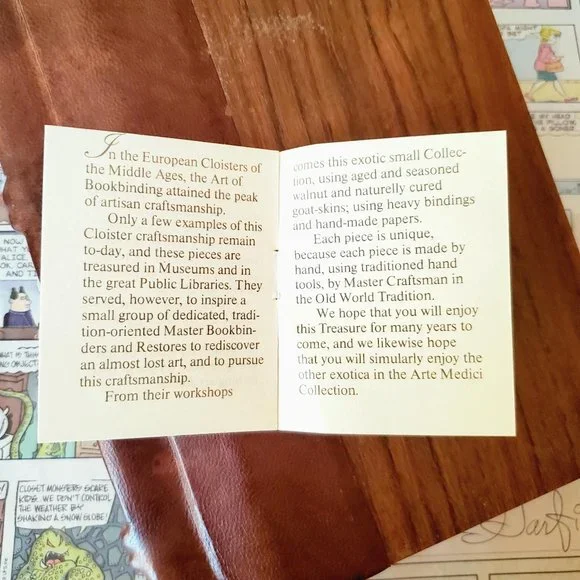 In the European Cloisters of
the Middle Ages, the Art of
Bookbinding attained the peak
of artisan craftsmanship.
Only a few examples of this
Cloister craftsmanship remain
to-day, and these pieces are
treasured in Museums and in
the great Public Libraries. They
served, however, to inspire a
small group of dedicated, tradi-
tion-oriented Master Bookbin-
ders and Restores to rediscover
an almost lost art, and to pursue
this craftsmanship.
From their workshops
comes this exotic small Collec-
tion, using aged and seasoned
walnut and naturelly cured
goat-skins; using heavy bindings
and hand-made papers.
Each piece is unique,
because each piece is made by
hand, using traditioned hand
tools, by Master Craftsman in
the Old World Tradition.
We hope that you will enjoy
this Treasure for many years to
come, and we likewise hope
that you will simularly enjoy the
other exotica in the Arte Medici
Collection.
NOW
ALICE,
CLOSET MONSTERS SCARE
KIDS... WE DON'T CONTROL
THE WEATHER BY
SHAKING A SNOW GLOBE!